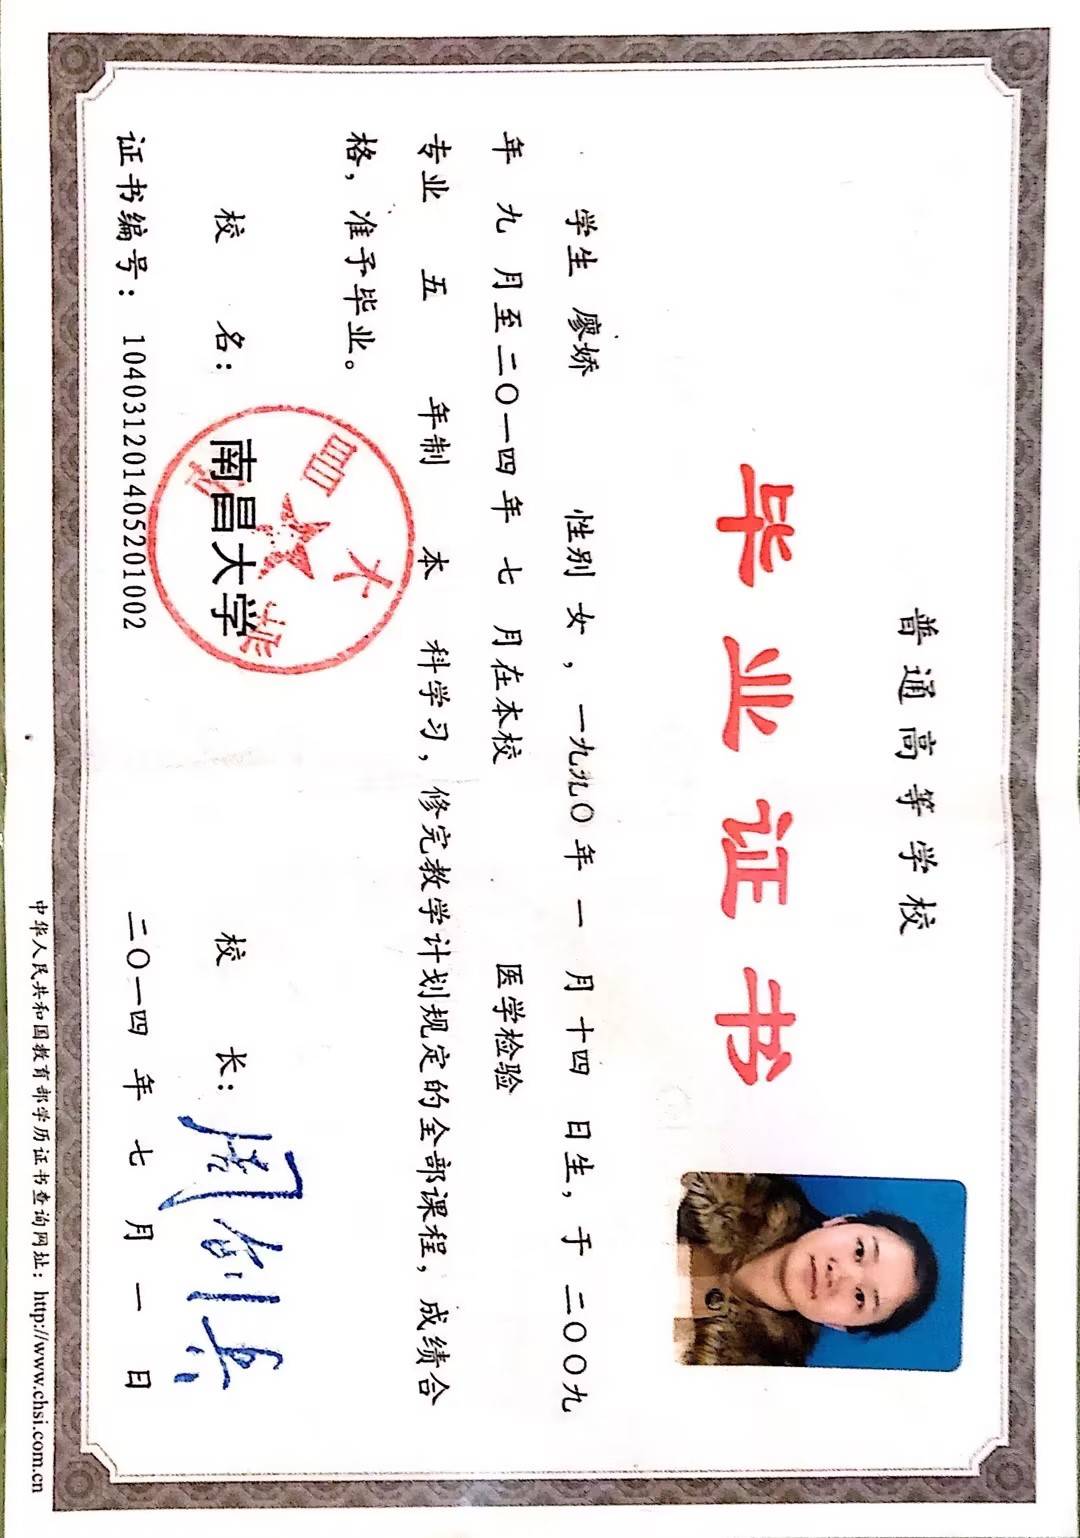 普通高等学校
毕业证书
学生 廖娇 性别 女，一九九〇年 一 月 十四 日生，于 二〇〇九
年 九 月至二〇一四年 七 月在本校 医学检验
专业 五 年制 本 科学习，修完教学计划规定的全部课程，成绩合
格，准予毕业。
校 名：南昌大学 校 长：
南昌大学
证书编号：104031201405201002 二〇一四 年 七 月 一 日
中华人民共和国教育部学历证书查询网址：http://www.chsi.com.cn